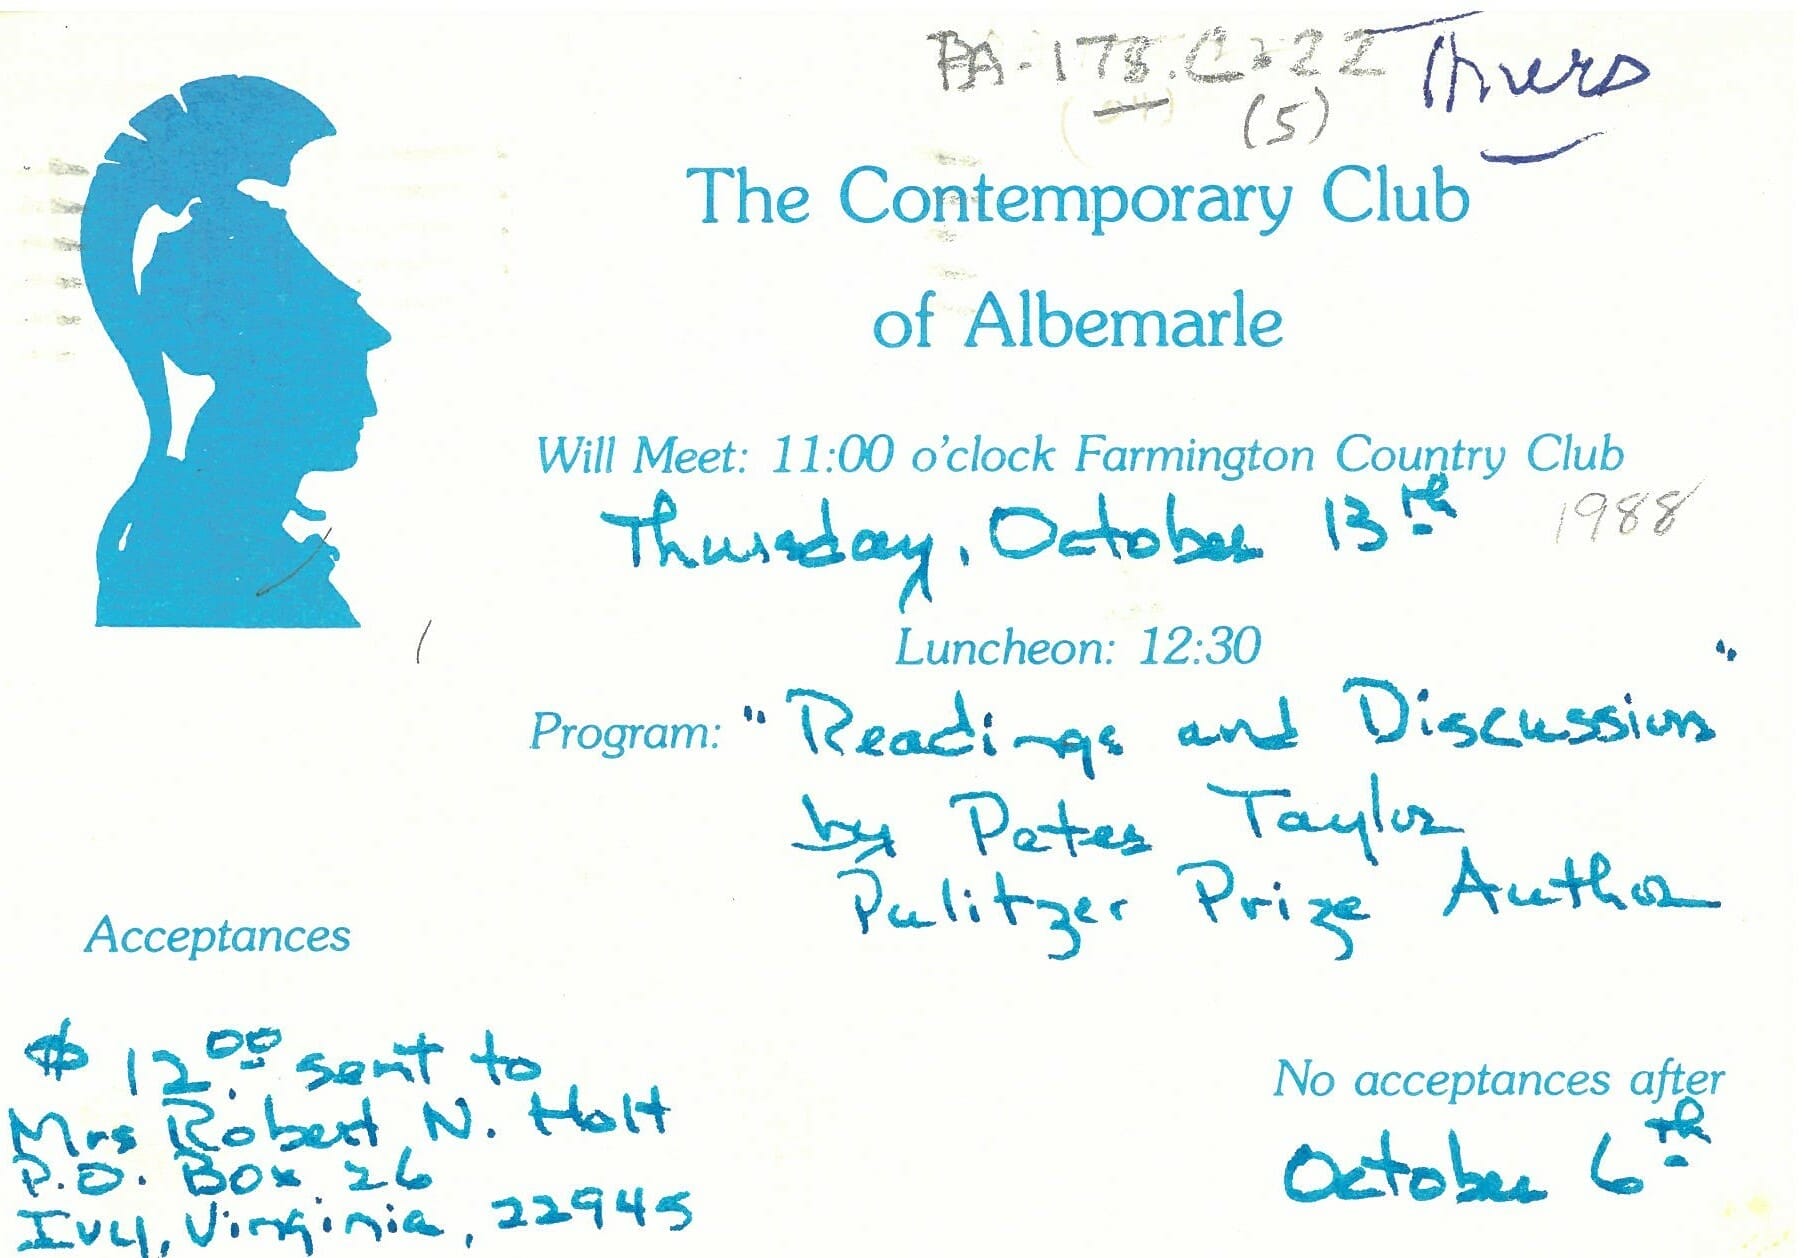 PA-178.C222 Thurs
(5)
The Contemporary Club
of Albemarle
Will Meet: 11:00 o'clock Farmington Country Club
Thursday, October 13th 1988
Luncheon: 12:30
Program: "Readings and Discussion"
by Peter Taylor
Pulitzer Prize Author
Acceptances
$12.00 sent to
Mrs Robert N. Holt
P.O. Box 26
Ivy, Virginia, 22945
No acceptances after
October 6th